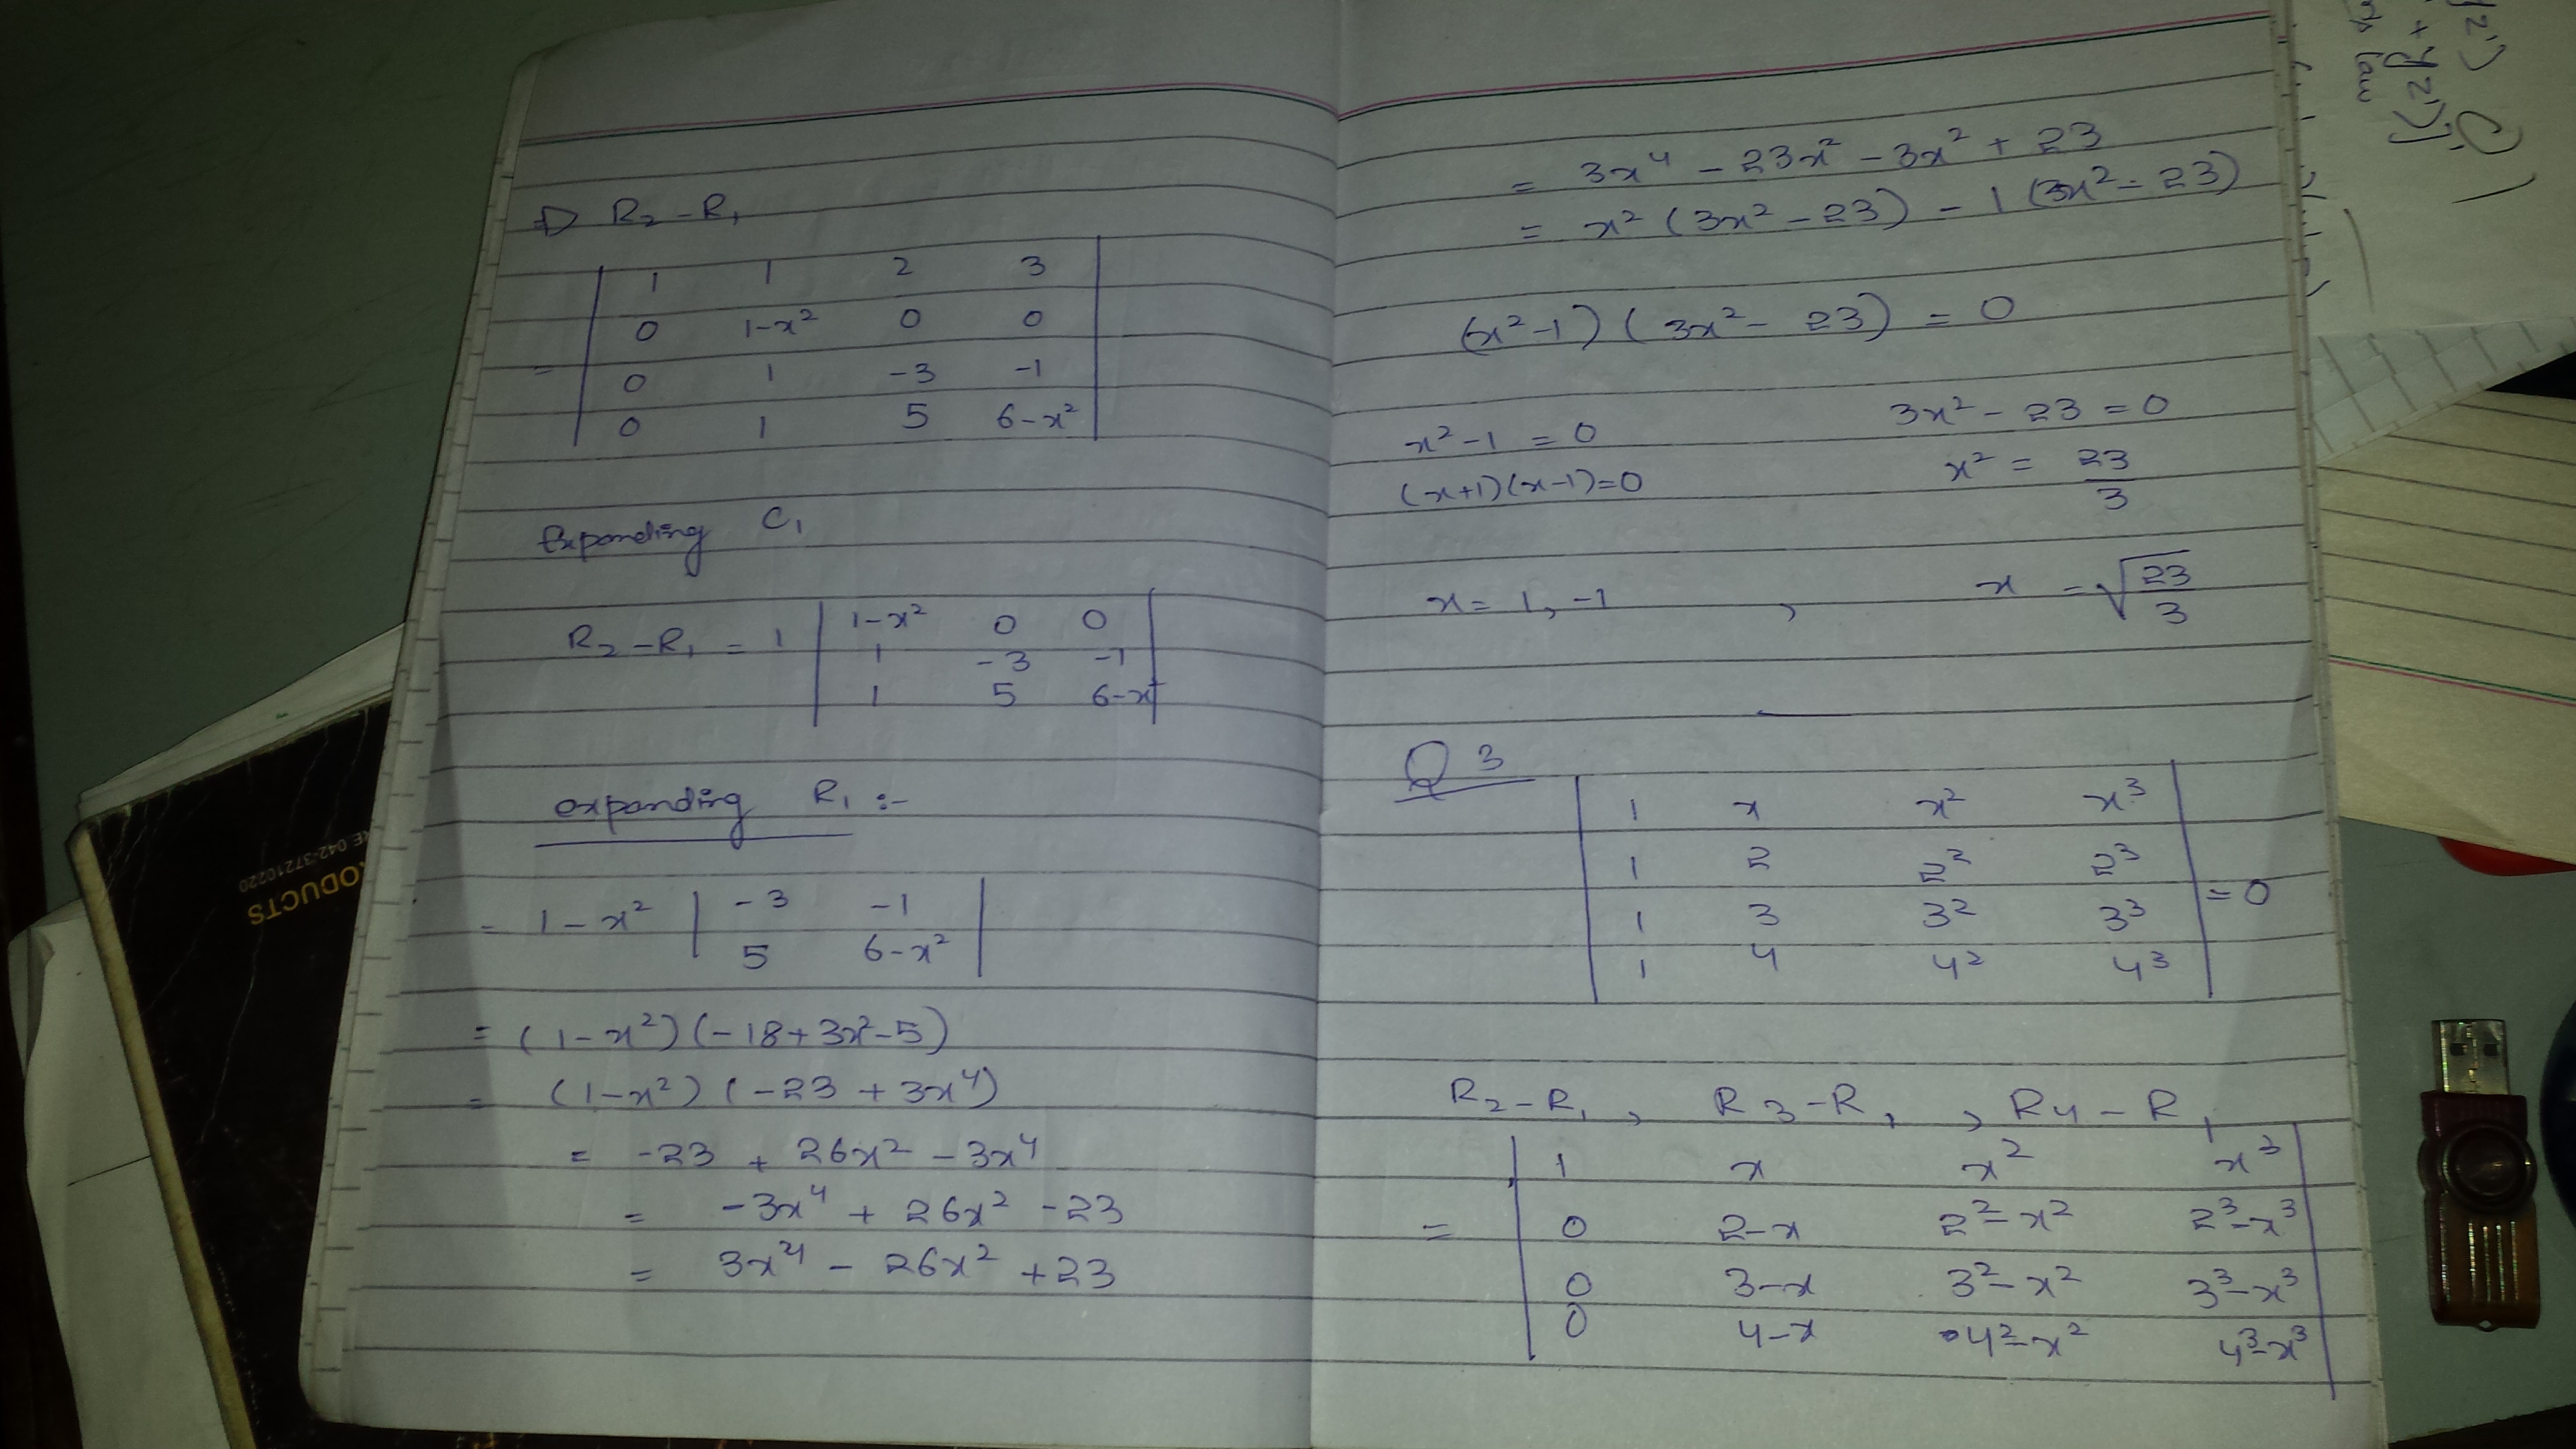 ⇒ R₂ - R₁
| 1 1 2 3 |
| 0 1-x² 0 0 |
= | 0 1 -3 -1 |
| 0 1 5 6-x² |
Expanding C₁
R₂ - R₁ = 1 | 1-x² 0 0 |
| 1 -3 -1 |
| 1 5 6-x² |
expanding R₁ :-
= 1-x² | -3 -1 |
| 5 6-x² |
= (1-x²)(-18+3x²-5)
= (1-x²)(-23 + 3x⁴)
= -23 + 26x² - 3x⁴
= -3x⁴ + 26x² - 23
= 3x⁴ - 26x² + 23
= 3x⁴ - 23x² - 3x² + 23
= x² (3x² - 23) - 1 (3x² - 23)
(x²-1) (3x² - 23) = 0
x² - 1 = 0 3x² - 23 = 0
(x+1)(x-1)=0 x² = 23/3
x = 1, -1 , x = √23/3
Q 3
| 1 x x² x³ |
| 1 2 2² 2³ |
| 1 3 3² 3³ | = 0
| 1 4 4² 4³ |
R₂ - R₁ , R3 - R₁ , R4 - R₁
| 1 x x² x³ |
= | 0 2-x 2²-x² 2³-x³ |
| 0 3-x 3²-x² 3³-x³ |
| 0 4-x 4²-x² 4³-x³ |
RE 042-37210220
RODUCTS
law